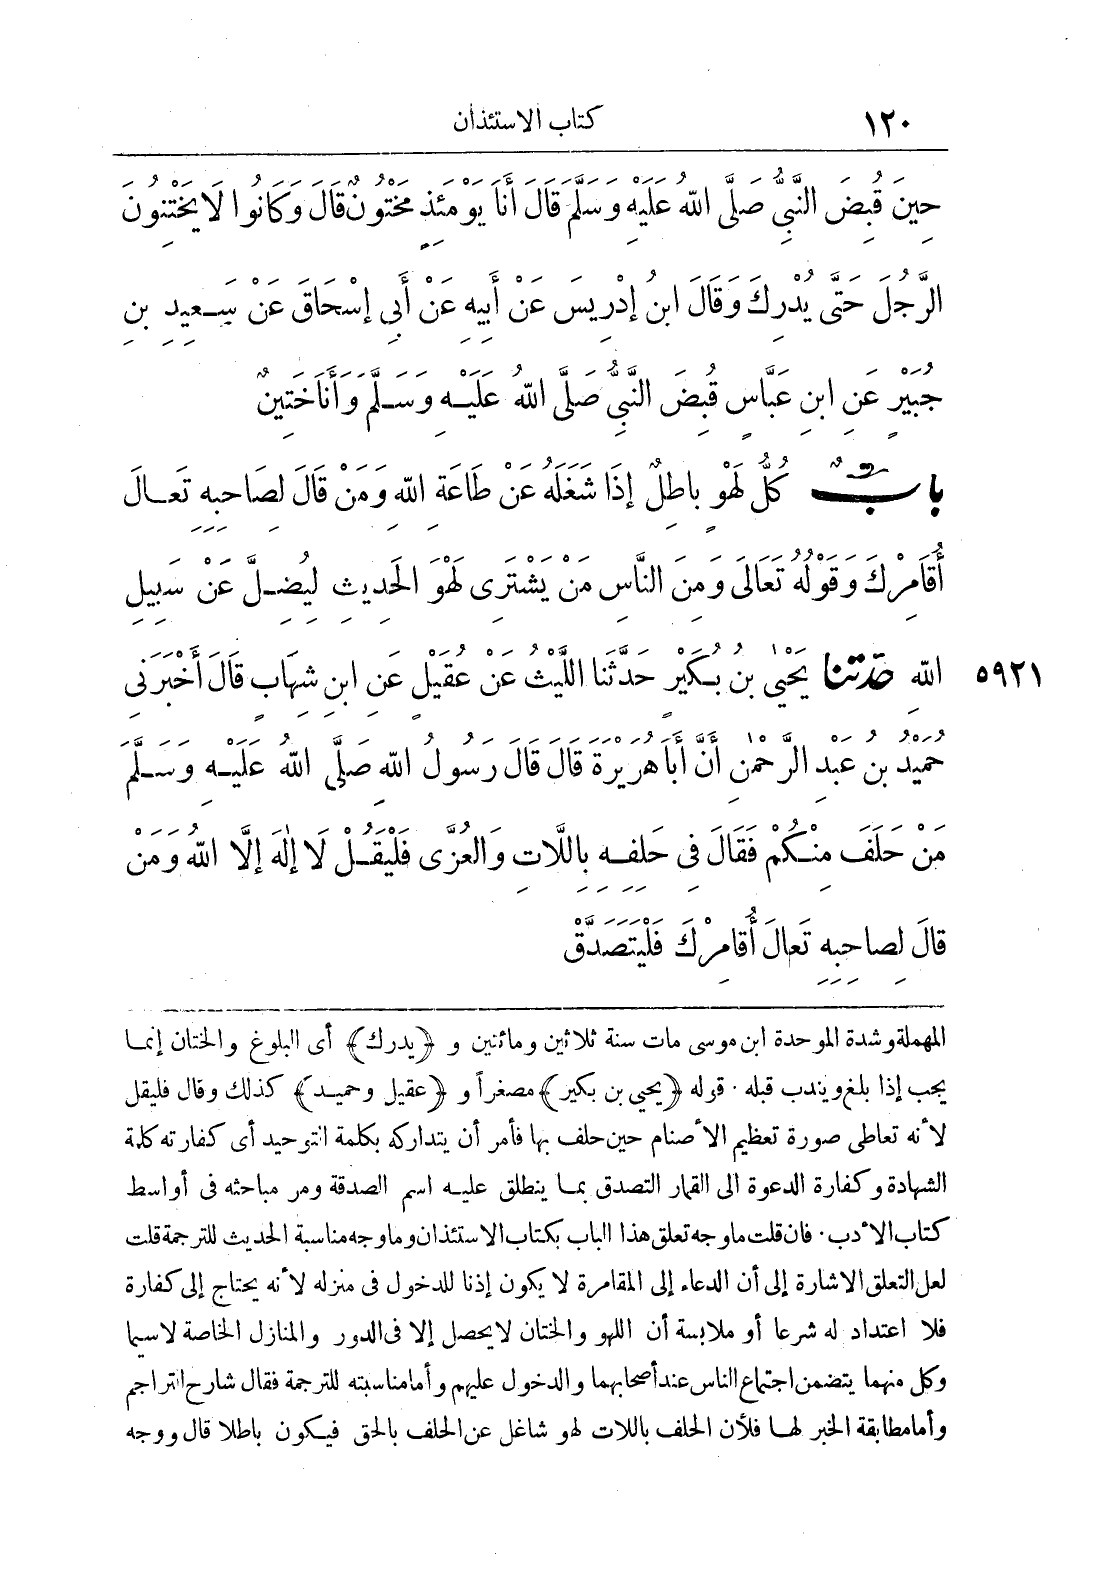 ١٢٠ كتاب الاستئذان
حِينَ قُبِضَ النَّبِيُّ صَلَّى اللهُ عَلَيْهِ وَسَلَّمَ قَالَ أَنَا يَوْمَئِذٍ مَخْتُونٌ قَالَ وَكَانُوا لَا يَخْتِنُونَ
الرَّجُلَ حَتَّى يُدْرِكَ وَقَالَ ابنُ إدْرِيسَ عَنْ أَبِيهِ عَنْ أَبِى إسْحَاقَ عَنْ سَعِيدِ بنِ
جُبَيْرٍ عَنِ ابنِ عَبَّاسٍ قُبِضَ النَّبِيُّ صَلَّى اللهُ عَلَيْهِ وَسَلَّمَ وَأَنَا خَتِينٌ
بابٌ كُلُّ لَهْوٍ باطِلٌ إذَا شَغَلَهُ عَنْ طَاعَةِ اللهِ وَمَنْ قَالَ لِصَاحِبِهِ تَعالَ
أُقَامِرْكَ وَقَوْلُهُ تَعَالَى وَمِنَ النَّاسِ مَنْ يَشْتَرِى لَهْوَ الْحَدِيثِ لِيُضِلَّ عَنْ سَبِيلِ
اللهِ حَدَّثَنَا يَحْيَى بنُ بُكَيْرٍ حَدَّثَنَا اللَّيْثُ عَنْ عُقَيْلٍ عَنِ ابنِ شِهَابٍ قَالَ أَخْبَرَنِى ٥٩٢١
حُمَيْدُ بنُ عَبْدِ الرَّحْمٰنِ أَنَّ أَبَا هُرَيْرَةَ قَالَ قَالَ رَسُولُ اللهِ صَلَّى اللهُ عَلَيْهِ وَسَلَّمَ
مَنْ حَلَفَ مِنْكُمْ فَقَالَ فِى حَلِفِهِ بِاللَّاتِ وَالعُزَّى فَلْيَقُلْ لَا إِلٰهَ إلَّا اللهُ وَمَنْ
قالَ لِصاحِبِهِ تَعالَ أُقامِرْكَ فَلْيَتَصَدَّقْ
المهملة وشدة الموحدة ابن موسى مات سنة ثلاثين ومائتين و ﴿يدرك﴾ أى البلوغ والختان إنما
يجب إذا بلغ ويندب قبله. قوله ﴿يحيى بن بكير﴾ مصغراً و ﴿عقيل وحميد﴾ كذلك وقال فليقل
لأنه تعاطى صورة تعظيم الأصنام حين حلف بها فأمر أن يتداركه بكلمة التوحيد أى كفارته كلمة
الشهادة وكفارة الدعوة الى القمار التصدق بما ينطلق عليه اسم الصدقة ومر مباحثه فى أواسط
كتاب الأدب. فان قلت ما وجه تعلق هذا الباب بكتاب الاستئذان وما وجه مناسبة الحديث للترجمة قلت
لعل التعلق الاشارة إلى أن الدعاء إلى المقامرة لا يكون إذنا للدخول فى منزله لأنه يحتاج إلى كفارة
فلا اعتداد له شرعا أو ملابسة أن اللهو والختان لا يحصل إلا فى الدور والمنازل الخاصة لاسيما
وكل منهما يتضمن اجتماع الناس عند أصحابهما والدخول عليهم وأما مناسبته للترجمة فقال شارح التراجم
وأما مطابقة الخبر لها فلأن الحلف باللات لهو شاغل عن الحلف بالحق فيكون باطلا قال ووجه